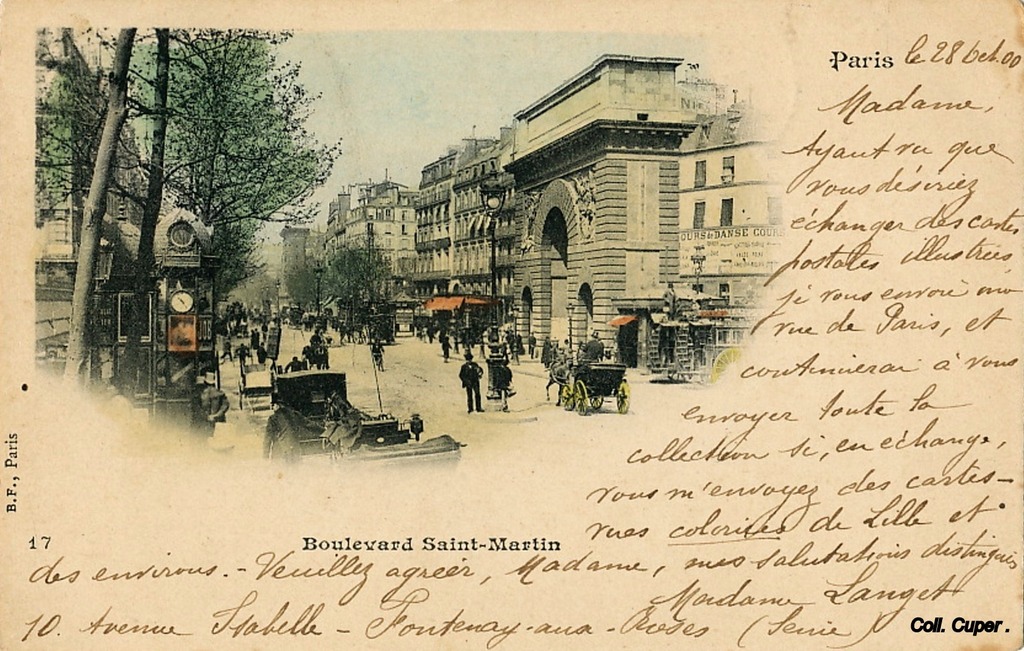 Paris le 28 Oct. 00
Madame,
Ayant vu que
vous désiriez
échanger des cartes
postales illustrées
je vous envoie une
vue de Paris, et
continuerai à vous
envoyer toute la
collection si, en échange,
vous m'envoyez des cartes-
vues coloriées de Lille et
des environs. - Veuillez agréer, Madame, mes salutations distinguées
Madame Langet
10. Avenue Isabelle - Fontenay-aux-Roses (Seine)
OURS DE DANSE COURS
B.F., Paris
17
Boulevard Saint-Martin
Coll. Cuper .